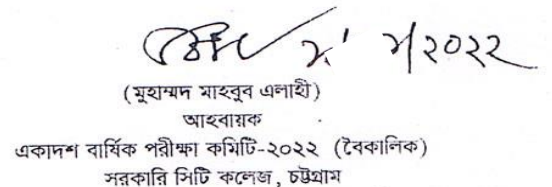 ২০২২
(মুহাম্মদ মাহবুব এলাহী)
আহবায়ক
একাদশ বার্ষিক পরীক্ষা কমিটি-২০২২ (বৈকালিক)
সরকারি সিটি কলেজ, চট্টগ্রাম